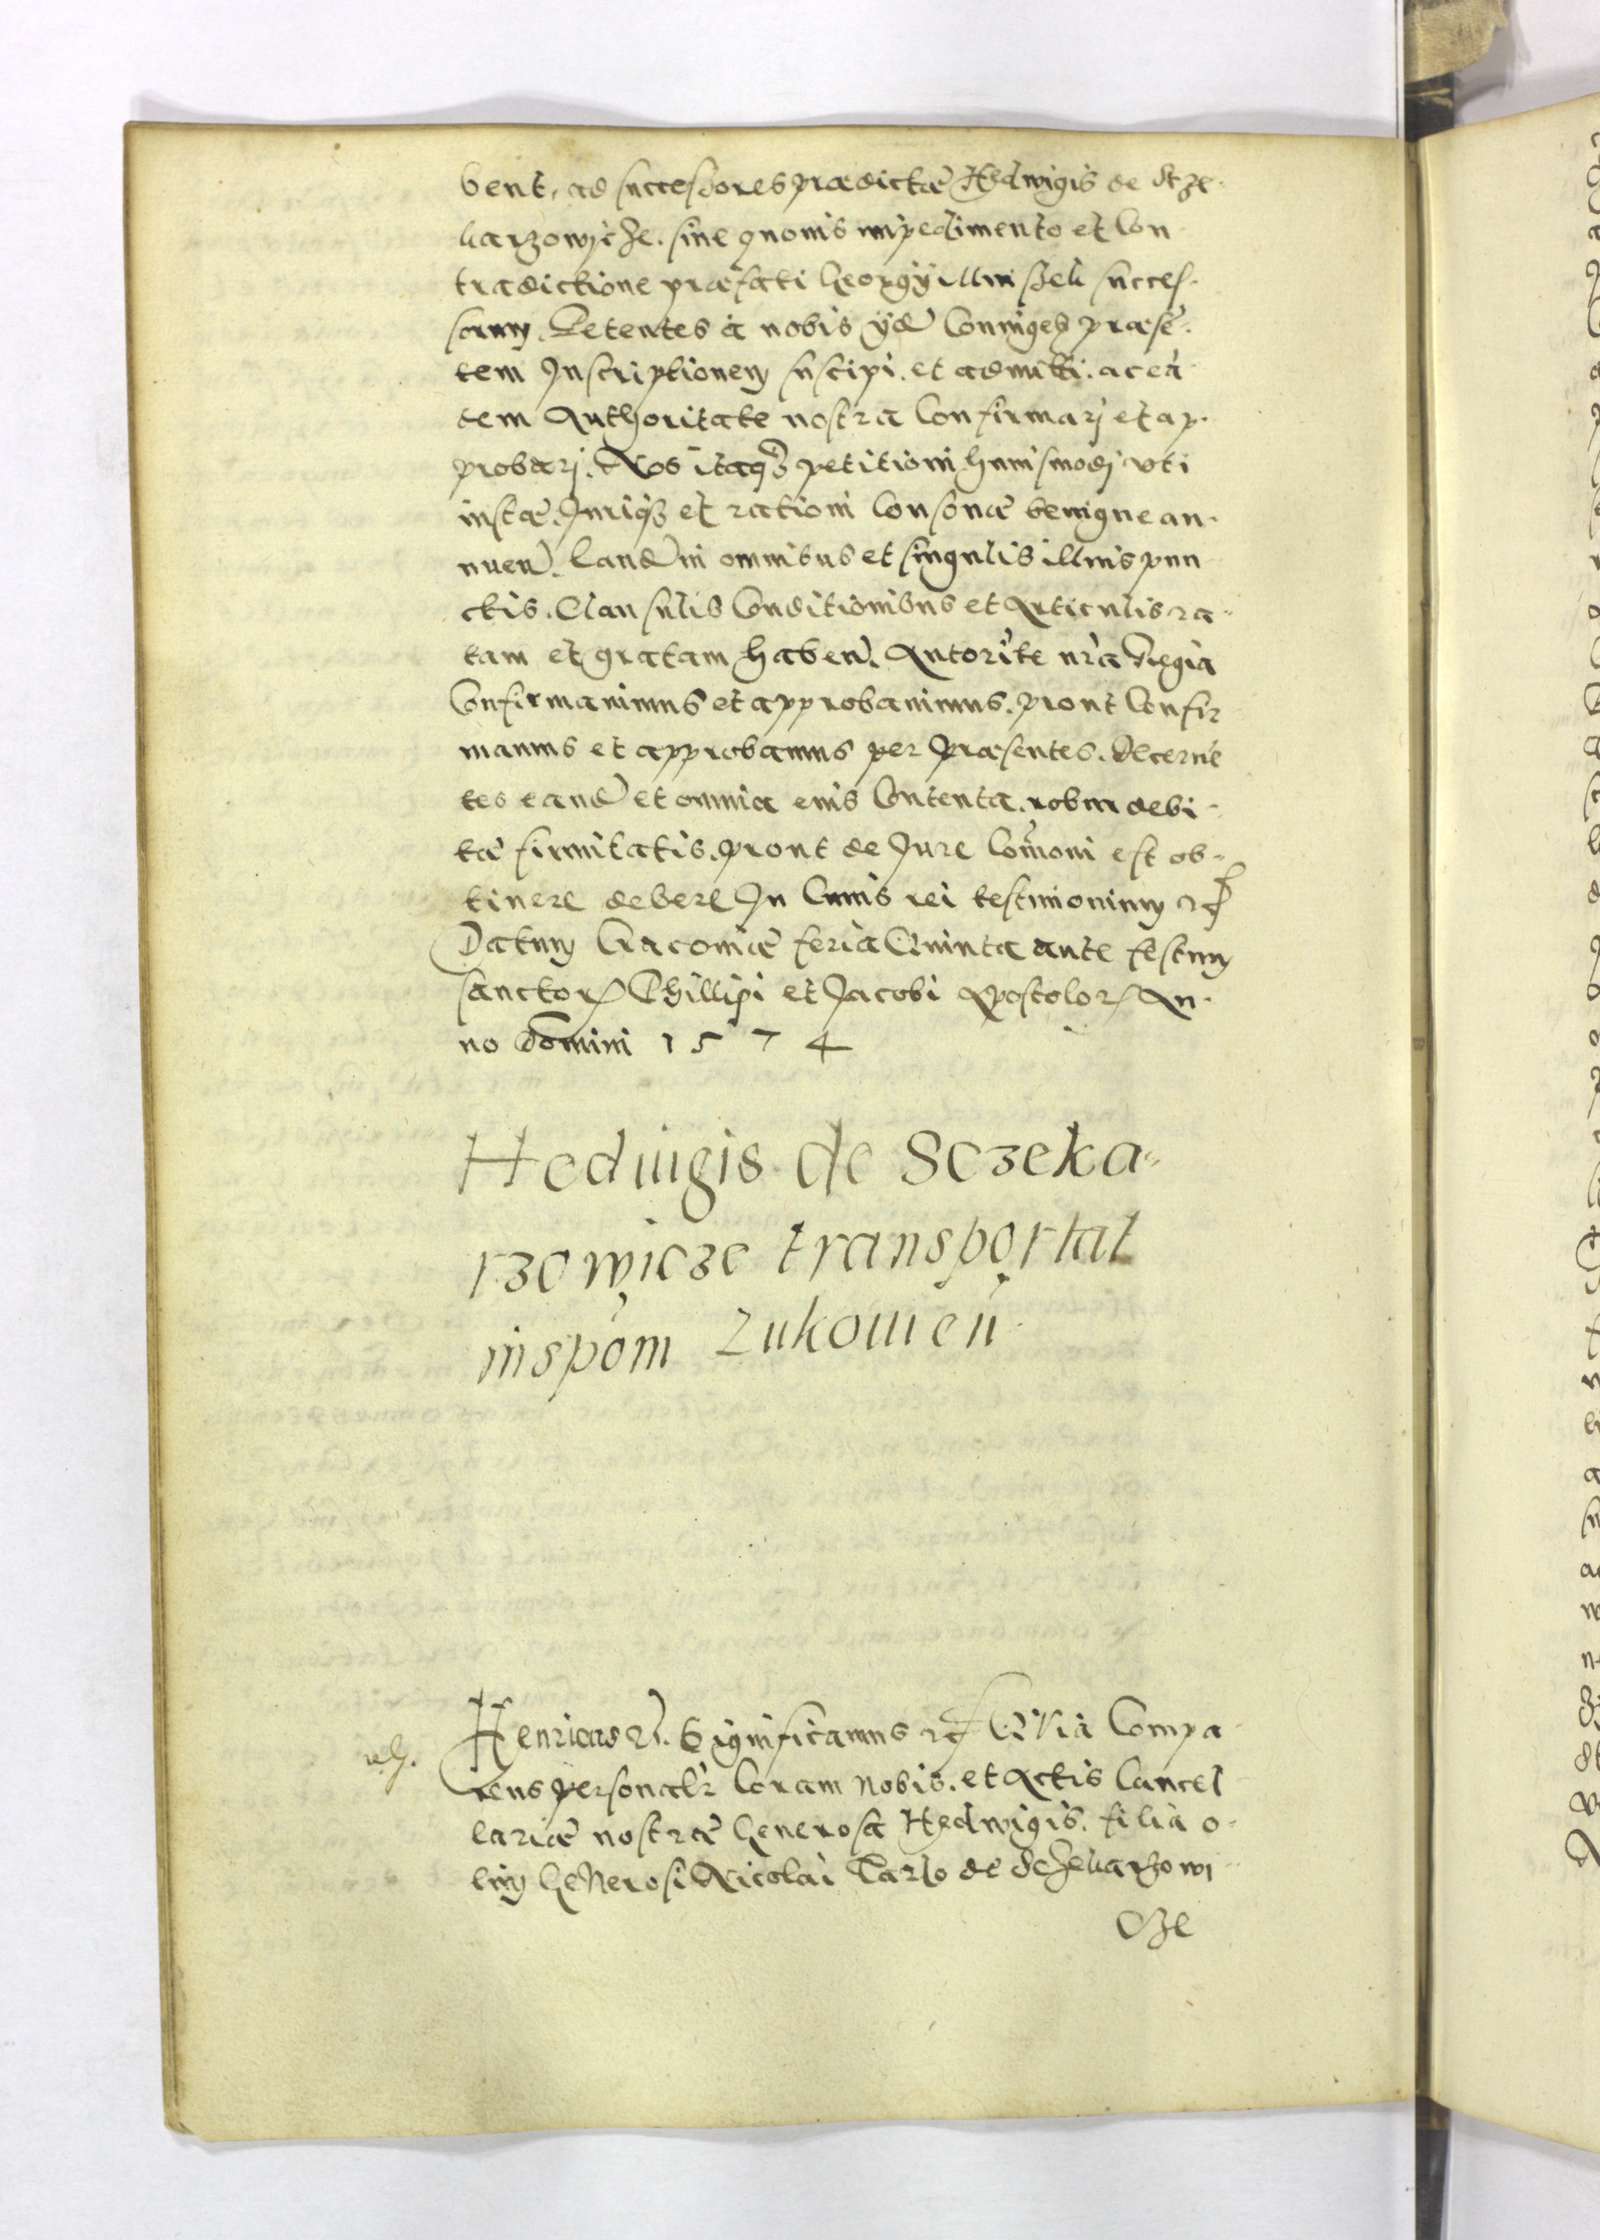 bent, ad successores prædictæ Hedwigis de Scze-
karzowicze. sine quouis impedimento et Con
tradictione præfati Georgÿ illius seu succes-
sorum. Petentes à nobis ÿd Coniuges præsē-
tem Inscriptionem suscipi. et admitti. ac eà
dem Authoritate nostra Confirmarj et ap-
probarj. Nos itaqȝ petitioni huiusmodj vti
iustæ. Juriqȝ et rationi Consonæ benigne an-
nuen. Eand in omnibus et singulis illius pun
ctis. Clausulis Conditionibus et Articulis ra-
tam et gratam haben. Autorite nrà Regia
Confirmauimus et approbauimus. prout Confir
mamus et approbamus per Præsentes. Decernē
tes eand et omnia eius Contenta. robur debi-
tæ firmitatis. prout de Jure Comoni est ob-
tinere debere In Cuius rei testimonium etc
Datum Cracouiæ feria Quinta ante festum
sanctor Phillipi et Jacobi Apostolor An-
no Domini 1574
Heduigis de Sczeka-
rzowicze transportat
in spom Zukowień
Henricus etc. Significamus etc QVia Compa
rens personalr Coram Nobis. et Actis Cancel
lariæ nostræ Generosa Hedwigis. filia o-
lim GeNerosi Nicolai Parlo de Sczekarzowi
cze